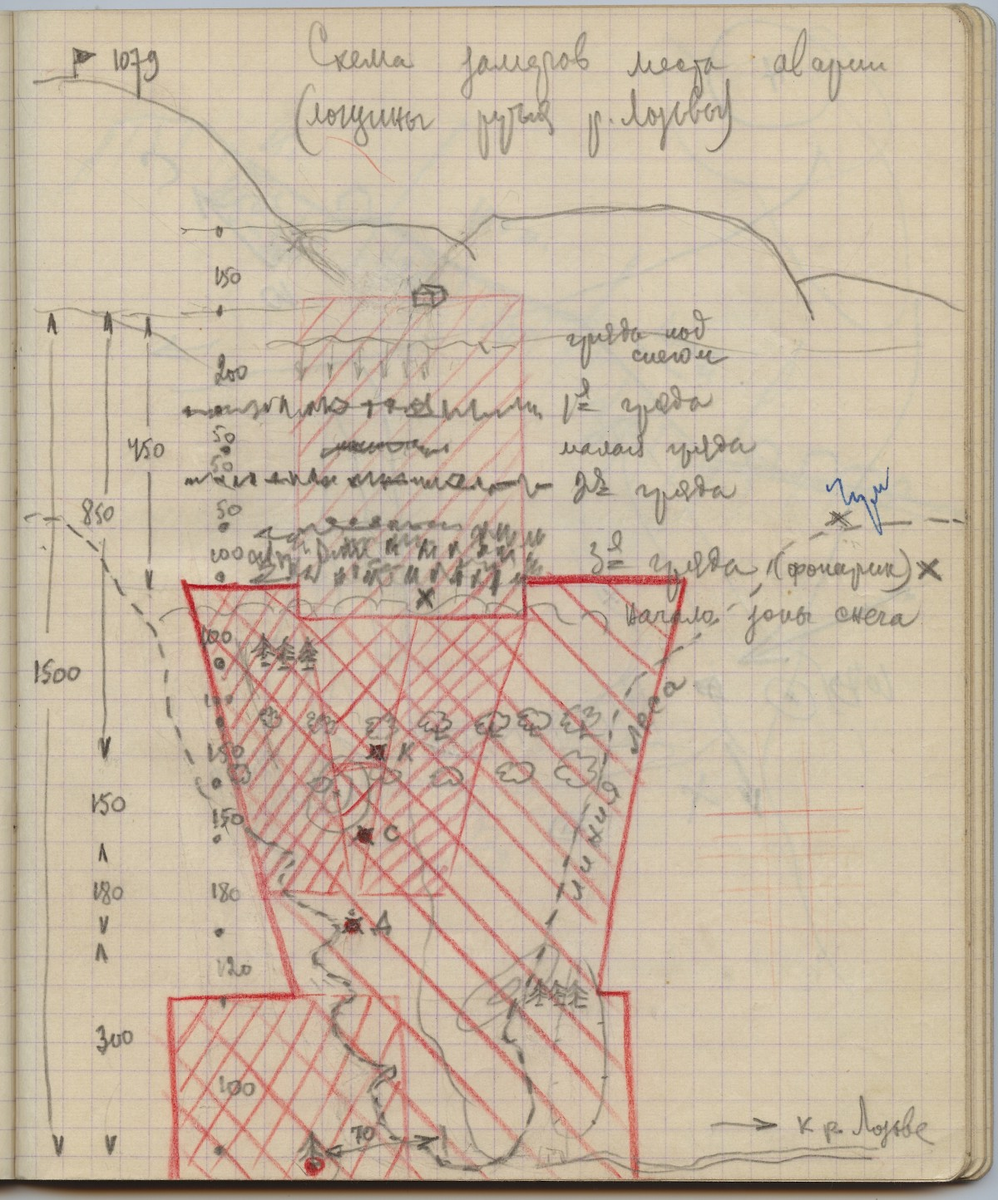 1079
Схема замеров места аварии
(лощины ручья р. Лозьвы)
150
гряда под
снегом
200
1я гряда
50
450
малая гряда
50
2я гряда
850
50
100
3я гряда (фонарик)
Начало зоны снега
100
1500
100
К
линия леса
150
150
150
С
180
180
А
120
300
100
70
к р. Лозьве